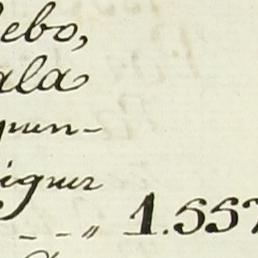 ebo,
ala
quen-
iguez
- - " 1.557